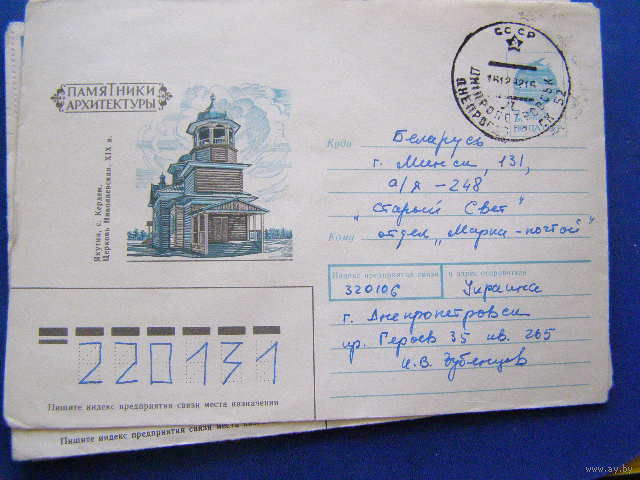 ПАМЯТНИКИ
АРХИТЕКТУРЫ
Якутия, с. Кердем.
Церковь Николаевская. XIX в.
СССР
ДНЕПРОПЕТРОВСК 52
Куда Беларусь
г. Минск, 131,
а/я - 248
"Старый Свет"
Кому отдел "Марка-почтой"
Индекс предприятия связи и адрес отправителя
320106 Украина
г. Днепропетровск
пр. Героев 35 кв. 265
И.В. Зубенцов
220131
Пишите индекс предприятия связи места назначения
Пишите индекс предприятия связи места
www.ay.by